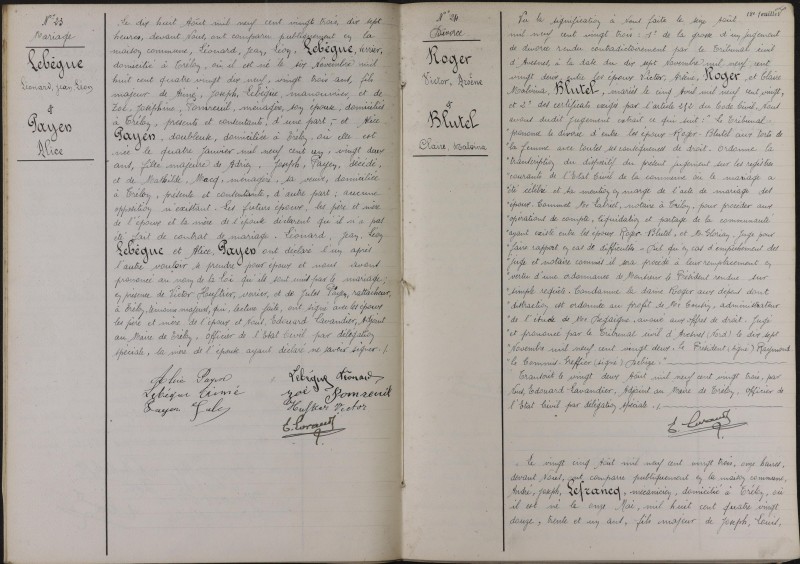 N° 23
Mariage
Lebègue
Léonard, Jean, Léon
&
Payen
Alice
Le dix huit Août mil neuf cent vingt trois, dix sept
heures, devant Nous, ont comparu publiquement en la
maison commune, Léonard, Jean, Léon, Lebègue,
domicilié à Trélon, où il est né le six Novembre mil
huit cent quatre vingt dix neuf, vingt trois ans, fils
majeur de Aimé, Joseph, Lebègue, manouvrier, et de
Zoé, Joséphine, ménagère, son épouse, domiciliés
à Trélon, présents et consentants, d'une part; et Alice
Payen, doubleuse, domiciliée à Trélon, où elle est
née le quatre Janvier mil neuf cent un, vingt deux
ans, fille majeure de Joseph, Payen, décédé,
et de Mathilde, Macq, ménagère, sa veuve, domiciliée
à Trélon, présente et consentante, d'autre part; aucune
opposition n'existant. Les futurs époux, les père et mère
de l'époux et la mère de l'épouse déclarent qu'il n'a pas
été fait de contrat de mariage. Léonard, Jean, Léon
Lebègue et Alice, Payen ont déclaré l'un après
l'autre vouloir se prendre pour époux et nous avons
prononcé au nom de la loi qu'ils sont unis par le mariage;
en présence de Victor Huftier, verrier, et de Jules Payen, rattacheur,
à Trélon, témoins majeurs, qui, lecture faite, ont signé avec les époux
les père et mère de l'époux et Nous Edouard Lavandier, Adjoint
au Maire de Trélon, officier de l'Etat Civil par délégation
spéciale, la mère de l'épouse ayant déclaré ne savoir signer./.
Payen
Lebègue Léonard
Lebègue Aimé
Zoé
Payen Jules
Huftier Victor
E. Lavandier
N° 24
Divorce
Roger
Victor, Arsène
&
Blutel
Claire, Malvina
feuillet
Vu la signification à Nous faite le six Août
mil neuf cent vingt trois: 1° de la grosse d'un jugement
de divorce rendu contradictoirement par le Tribunal civil
d'Avesnes à la date du dix sept Novembre mil neuf cent
vingt deux entre les époux Victor, Arsène, Roger et Claire
Malvina, Blutel, mariés le cinq Août mil neuf cent vingt,
et 2° des certificats exigés par l'article 252 du Code Civil, Nous
avons dudit jugement extrait ce qui suit: "Le Tribunal,
"prononce le divorce d'entre les époux Roger-Blutel aux torts de
"la femme avec toutes ses conséquences de droit. Ordonne la
"transcription du dispositif du présent jugement sur les registres
"courants de l'Etat Civil de la commune où le mariage a
"été célébré et sa mention en marge de l'acte de mariage des
"époux. Commet Me notaire à Trélon, pour procéder aux
"opérations de compte, liquidation et partage de la communauté
"ayant existé entre les époux Roger Blutel, et Mr Juge pour
"faire rapport en cas de difficultés. Dit qu'en cas d'empêchement des
"juge et notaire commis il sera procédé à leur remplacement en
"vertu d'une ordonnance de Monsieur le Président rendue sur
"simple requête. Condamne la dame Roger aux dépens dont
"distraction est ordonnée au profit de Me administrateur
"de l'étude de Me avoué aux offres de droit. Jugé
"et prononcé par le Tribunal civil d'Avesnes (Nord) le dix sept
"Novembre mil neuf cent vingt deux. Le Président (signé)
"Le Commis Greffier (signé)
Transcrit le vingt deux Août mil neuf cent vingt trois, par
Nous, Edouard Lavandier, Adjoint au Maire de Trélon, Officier de
l'Etat Civil par délégation spéciale./.
E. Lavandier
Le vingt cinq Août mil neuf cent vingt trois, onze heures,
devant Nous, ont comparu publiquement en la maison commune,
André, Joseph, Lefrancq, mécanicien, domicilié à Trélon, où
il est né le onze Mai, mil huit cent quatre vingt
douze, trente et un ans, fils majeur de Joseph, Louis,